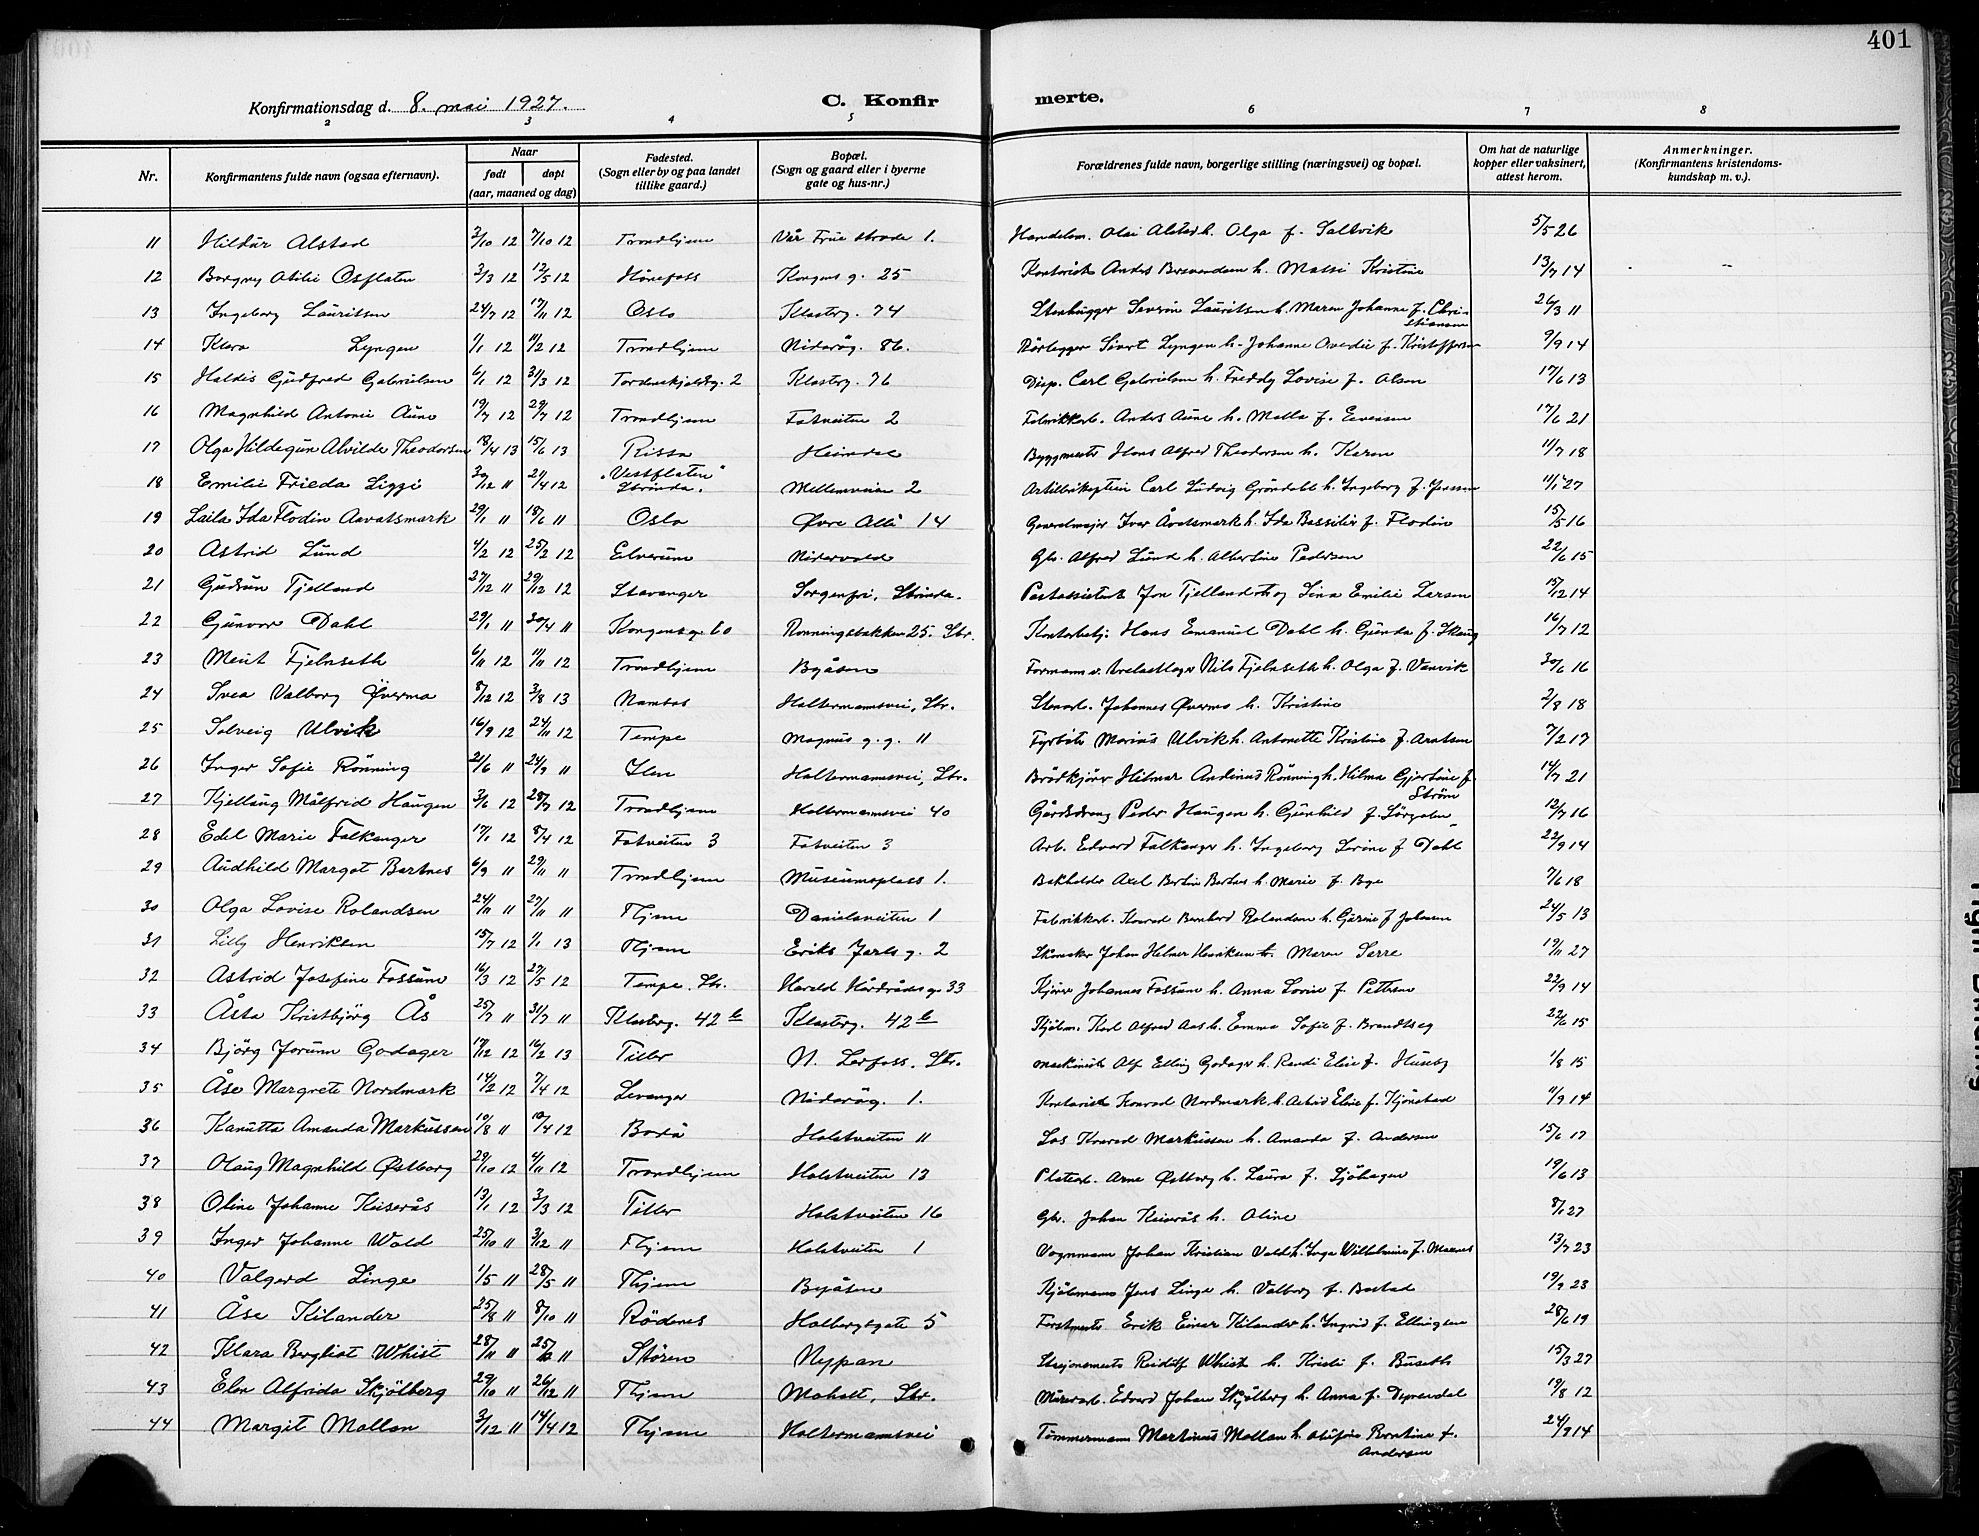 401
Konfirmationsdag d. 8. mai 1927.
C. Konfir
merte.
2 3 4 5 6 7 8
Nr.
Konfirmantens fulde navn (ogsaa efternavn).
Naar
født døpt
(aar, maaned og dag)
Fødested.
(Sogn eller by og paa landet
tillike gaard.)
Bopæl.
(Sogn og gaard eller i byerne
gate og hus-nr.)
Forældrenes fulde navn, borgerlige stilling (næringsvei) og bopæl.
Om hat de naturlige
kopper eller vaksinert,
attest herom.
Anmerkninger.
(Konfirmantens kristendoms-
kundskap m. v.).
11 Hildur Alstad 3/10 12 7/10 12 Trondhjem Vår Frue strade 1. Handelsm. Olai Alstad h. Olga f. Saltvik 5/5 26
12 Borgny Otilie Osflaten 3/3 12 12/5 12 Hönefoss Kongens g. 25 Kontorist Anders h. Kristine 13/7 14
13 Ingeborg Lauritsen 24/7 12 17/11 12 Oslo Klosterg. 74 Stenhugger Severin Lauritsen h. Maren Johanne f. Chris-
tiansen 26/3 11
14 Klara Lyngen 1/1 12 11/2 12 Trondhjem Nidaråsg. 86. Rörlegger Sivert Lyngen h. Johanne f. Kristoffersen 9/9 14
15 Haldis Gudfred Gabrielsen 6/1 12 31/3 12 Tordenskjoldsg. 2 Klosterg. 76 Disp. Carl Gabrielsen h. Freddy Lovise f. Olsen 17/6 13
16 Magnhild Antonie Aune 19/7 12 29/7 12 Trondhjem Fotveiten 2 Fabrikkarb. Anders Aune h. Malla f. Evensen 17/6 21
17 Olga Hildegun Alvilde Theodorsen 18/4 13 15/6 13 Rissa Heimdal Byggmester Hans Alfred Theodorsen h. Karen 11/7 18
18 Emilie Frieda Liggi 30/12 11 21/4 12 "Vestflaten"
Strinda. Mellemveien 2 Artillerikaptein Carl Ludvig Gröndahl h. Ingeborg f. Jenssen 11/1 27
19 Laila Ida Flodin Aavatsmark 29/1 11 18/6 11 Oslo Øvre Alle 14 Generalmajor Ivar Åvatsmark h. Ida Bassilie f. Flodin 15/5 16
20 Astrid Lund 4/2 12 25/2 12 Elverum Nidarvold Gbr. Alfred Lund h. Albertine Pedersen 22/6 15
21 Gudrun Tjelland 27/12 11 29/12 12 Stavanger Sorgenfri, Strinda. Postassistent Jon Tjelland og Sina Emilie Larsen 15/12 14
22 Gunvor Dahl 29/1 11 30/4 11 Kongensg. 60 Rønningsbakken 25. Str. Kontorbetj. Hans Emanuel Dahl h. Gunda f. Skaug 16/7 12
23 Merit Fjelnseth 6/11 12 11/11 12 Trondhjem Byåsen Formann v. Nils Fjelnseth h. Olga f. Venvik 30/6 16
24 Svea Valborg Övermo 8/12 12 3/8 13 Namsos Holtermannsvei, Str. Stenarb. Johannes Øvermo h. Kristine 2/8 18
25 Solveig Ulvik 16/9 12 24/11 12 Tempe Magnus g. g. 11 Fyrböter Marius Ulvik h. Antonette Kristine f. Arntsen 7/2 17
26 Inger Sofie Rönning 21/6 11 24/9 11 Ilen Holtermannsvei, Str. Brödkjörer Hilmar Andinus Rönning h. Hilma Gjertine f.
Ström 14/7 21
27 Kjellaug Målfrid Haugen 3/6 12 28/7 12 Trondhjem Holtermannsvei 40 Gårdsdreng Peder Haugen h. Gunhild f. 12/7 16
28 Edel Marie Falkanger 17/1 12 8/4 12 Fotveiten 3 Fotveiten 3 Arb. Edvard Falkanger h. Ingeborg Serine f Dahl 22/9 14
29 Audhild Margot Bartnes 6/9 11 29/11 11 Trondhjem Museumsplass 1. Bokholder Axel Bertin Bartnes h. Marie f. Bye 7/6 18
30 Olga Lovise Rolandsen 24/11 11 27/11 11 Thjem Danielsveiten 1 Fabrikkarb. Konrad Bernhard Rolandsen h. Gurine f Johnsen 24/5 13
31 Lilly Henriksen 15/7 12 1/1 13 Thjem Eriks Jarls g. 2 Skomaker Johan Helmer Henriksen h. Maren Serre 19/11 27
32 Astrid Josefine Fossum 16/3 12 27/5 12 Tempe. Str. Harald Hårdrådes g. 33 Kjörer Johannes Fossum h. Anna Lovise f. Pettersen 22/9 14
33 Åsta Kristbjörg Ås 25/7 11 31/7 11 Klosterg. 42 b Klosterg. 42 b Kjöbm. Karl Alfred Aas h. Emma Sofie f. Brandtseg 22/6 15
34 Björg Jorunn Godager 17/12 12 16/2 13 Tiller N. Lerfoss. Str. Maskinist Alf Elling Godager h. Randi Elise f. Huseby 1/8 15
35 Åse Margrete Nordmark 14/2 12 7/4 12 Levanger Nidaråsg. 1. Kontorist Konrad Nordmark h. Astrid Elise f. Kjönstad 11/9 14
36 Kanutta Amanda Markussen 10/8 11 10/4 12 Bodö Holstveiten 11 Los Konrad Markussen h. Amanda f. Andersen 15/6 17
37 Olaug Magnhild Østborg 29/10 12 4/11 12 Trondhjem Holstveiten 13 Platearb. Arne Østborg h. Laura f. Sjöhagen 19/6 13
38 Oline Johanne Kiserås 13/1 12 3/3 12 Tiller Holstveiten 16 Gbr. Johan Kiserås h. Oline 8/1 27
39 Inger Johanne Wold 25/10 11 3/12 11 Thjem Holstveiten 1 Vognmann Johan Kristian Vold h. Inga Wilhelmine f. Moxnes 13/7 23
40 Valgerd Linge 1/5 11 28/5 11 Thjem Byåsen Kjöbmann Jens Linge h. Valborg f. Bostad 19/9 23
41 Åse Kilander 25/8 11 8/10 11 Rödenes Holbergsgate 5 Forstmester Erik Einar Kilander h. Ingrid f. Ellingsen 28/6 19
42 Klara Bergliot Whist 28/11 11 25/12 11 Stören Nypan Stasjonsmester Reidulf Whist h. Kristi f. Buseth 15/3 27
43 Elen Alfrida Skjölberg 29/10 11 26/12 11 Thjem Moholt, Str. Murerarb. Edvard Johan Skjölberg h. Anna f. Digrandal 19/8 12
44 Margit Mollan 3/12 11 14/4 12 Thjem Holtermannsvei Tömmermann Martinus Mollan h. Berntine f.
Andersen 24/9 14